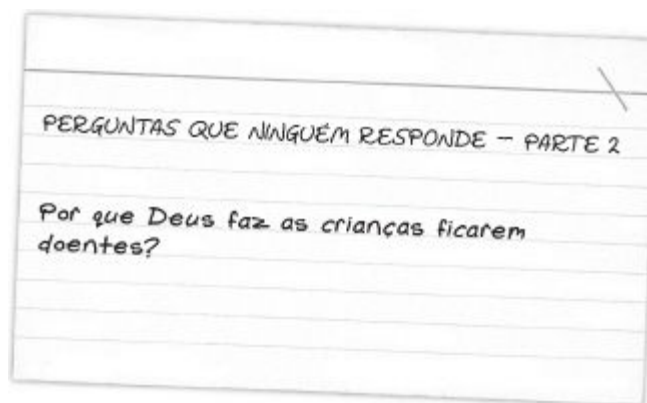 PERGUNTAS QUE NINGUÉM RESPONDE – PARTE 2
Por que Deus faz as crianças ficarem
doentes?